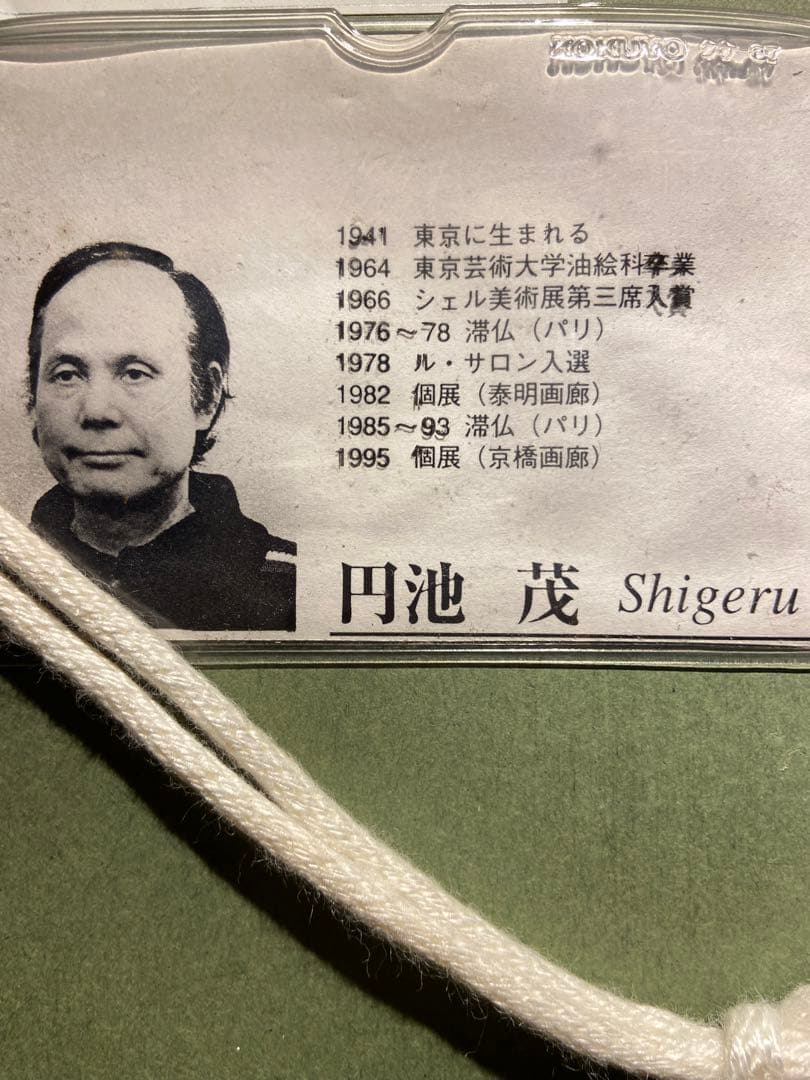 KOKUYO
1941 東京に生まれる
1964 東京芸術大学油絵科卒業
1966 シェル美術展第三席入賞
1976～78 滞仏（パリ）
1978 ル・サロン入選
1982 個展（泰明画廊）
1985～93 滞仏（パリ）
1995 個展（京橋画廊）
円池 茂 Shigeru